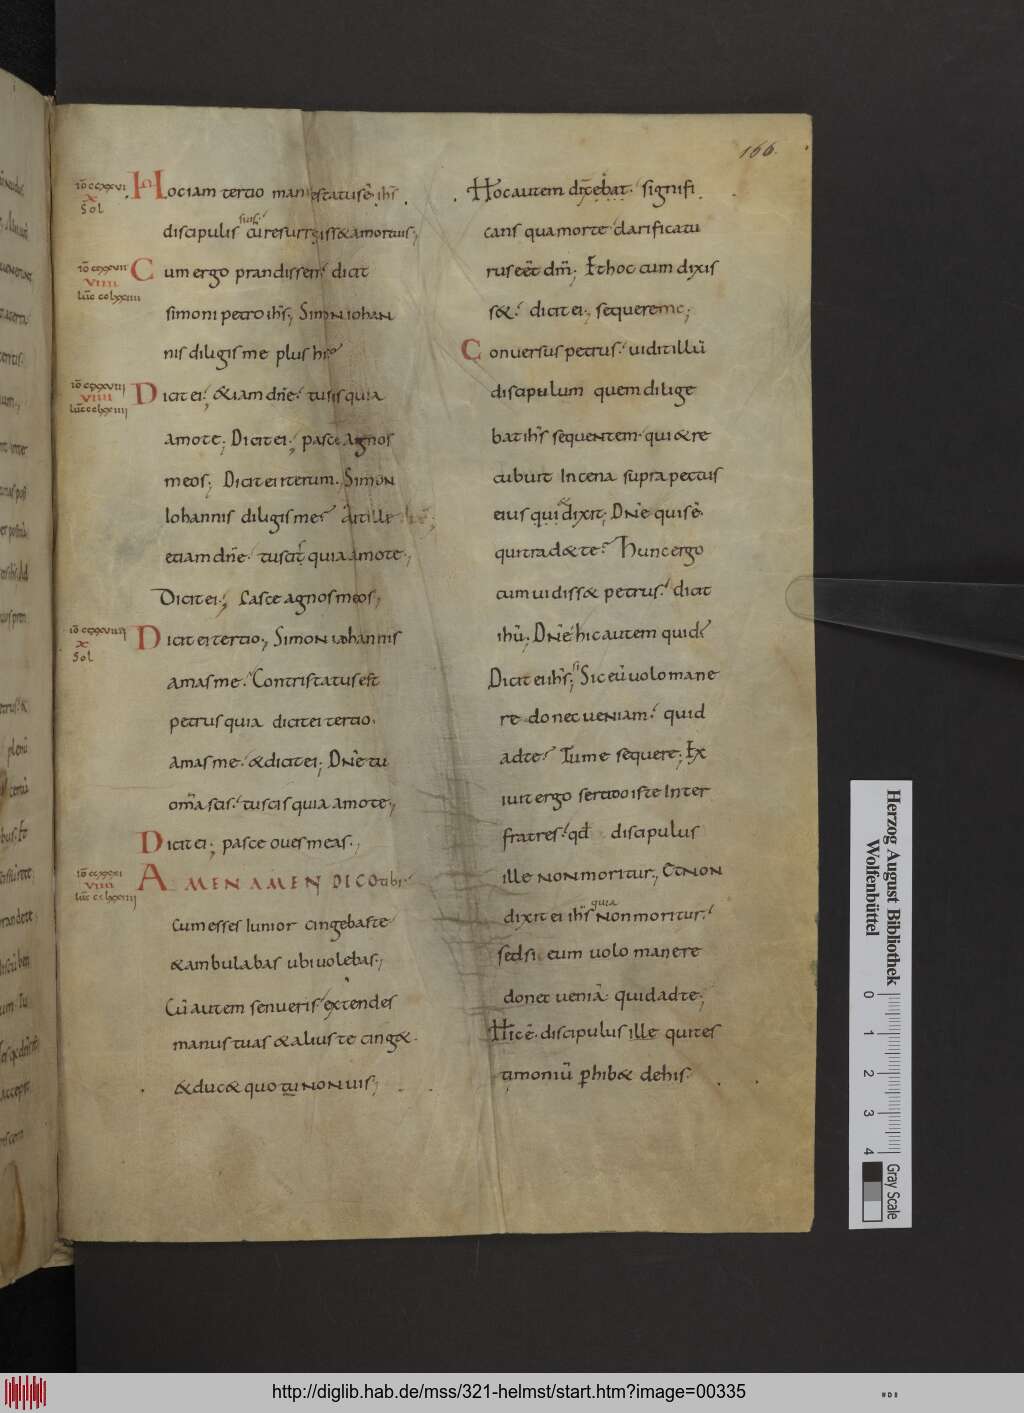 166.
iō ccxxvi
x
Sol
Hociam tertio manifestatus ē ihs
discipulis suis cū resurrexiss& amortuis;
iō ccxxvii
viiii
luc cclxxiiii
Cum ergo prandissent dicit
simoni petro ihs; Simon iohan
nis diligis me plus his
iō ccxxviii
viiii
luc cclxxiiii
Dicit ei; &iam dn̄e tu scis quia
amo te; Dicit ei; pasce agnos
meos; Dicit ei iterum. Simon
Iohannis diligis me Ait ille
etiam dn̄e tu scis quia amo te;
Dicit ei; Pasce agnos meos;
iō ccxxviiii
x
Sol
Dicit ei tertio; Simon iohannis
amas me. Contristatus est
petrus quia dicit ei tertio.
amas me. & dicit ei; Dn̄e tu
om̄a scis. tu scis quia amo te;
Dicit ei; pasce oues meas.;
iō ccxxxi
viiii
luc cclxxiiii
AMEN AMEN DICO tibi
Cum esses Iunior cingebas te
& ambulabas ubi uolebas;
Cū autem senueris extendes
manus tuas & alius te cing&.
& duc& quo tu non uis;
Hoc autem dicebat. signifi
cans qua morte clarificatu
rus e&̄ dm̄; Et hoc cum dixis
s&. dicit ei; sequere me;
Conuersus petrus. uidit illū
discipulum quem dilige
bat ihs sequentem. qui & re
cubuit In cena supra pectus
eius qui & dixit; Dn̄e quis ē.
qui trad& te? Hunc ergo
cum uidiss& petrus. dicit
ihū; Dn̄e hic autem quid?
Dicit ei ihs; si Sic eū uolo mane
re donec ueniam. quid
ad te? Tu me sequere; Ex
iuit ergo sermo iste Inter
fratres. qđ discipulus
ille non moritur; Et non
dixit ei ihs quia Non moritur.
sed si eum uolo manere
donec ueniā quid ad te;
Hic ē. discipulus ille qui tes
timoniū phib& de his.
Herzog August Bibliothek
Wolfenbüttel
0 1 2 3 4
Gray Scale
http://diglib.hab.de/mss/321-helmst/start.htm?image=00335